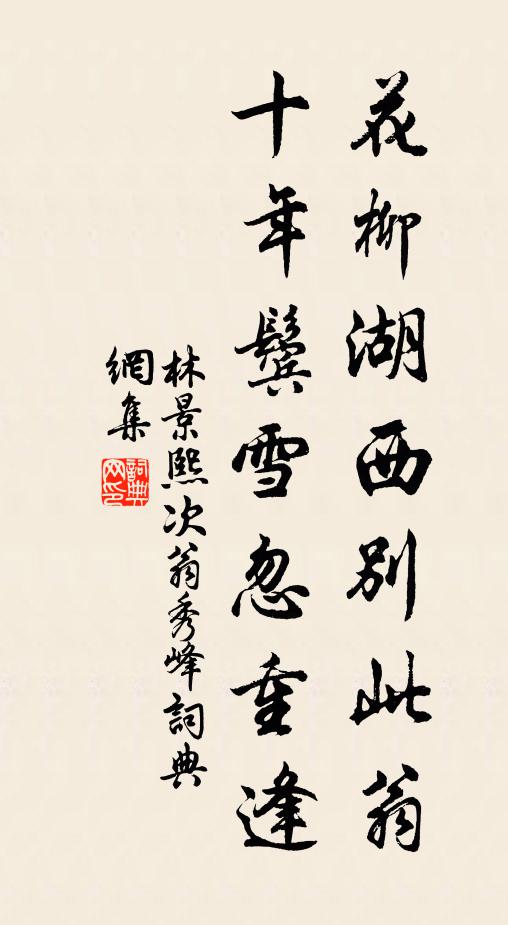 花柳湖西別此翁
十年鬢雪忽重逢
林景熙次翁秀峰詞典
網集
詞典網印